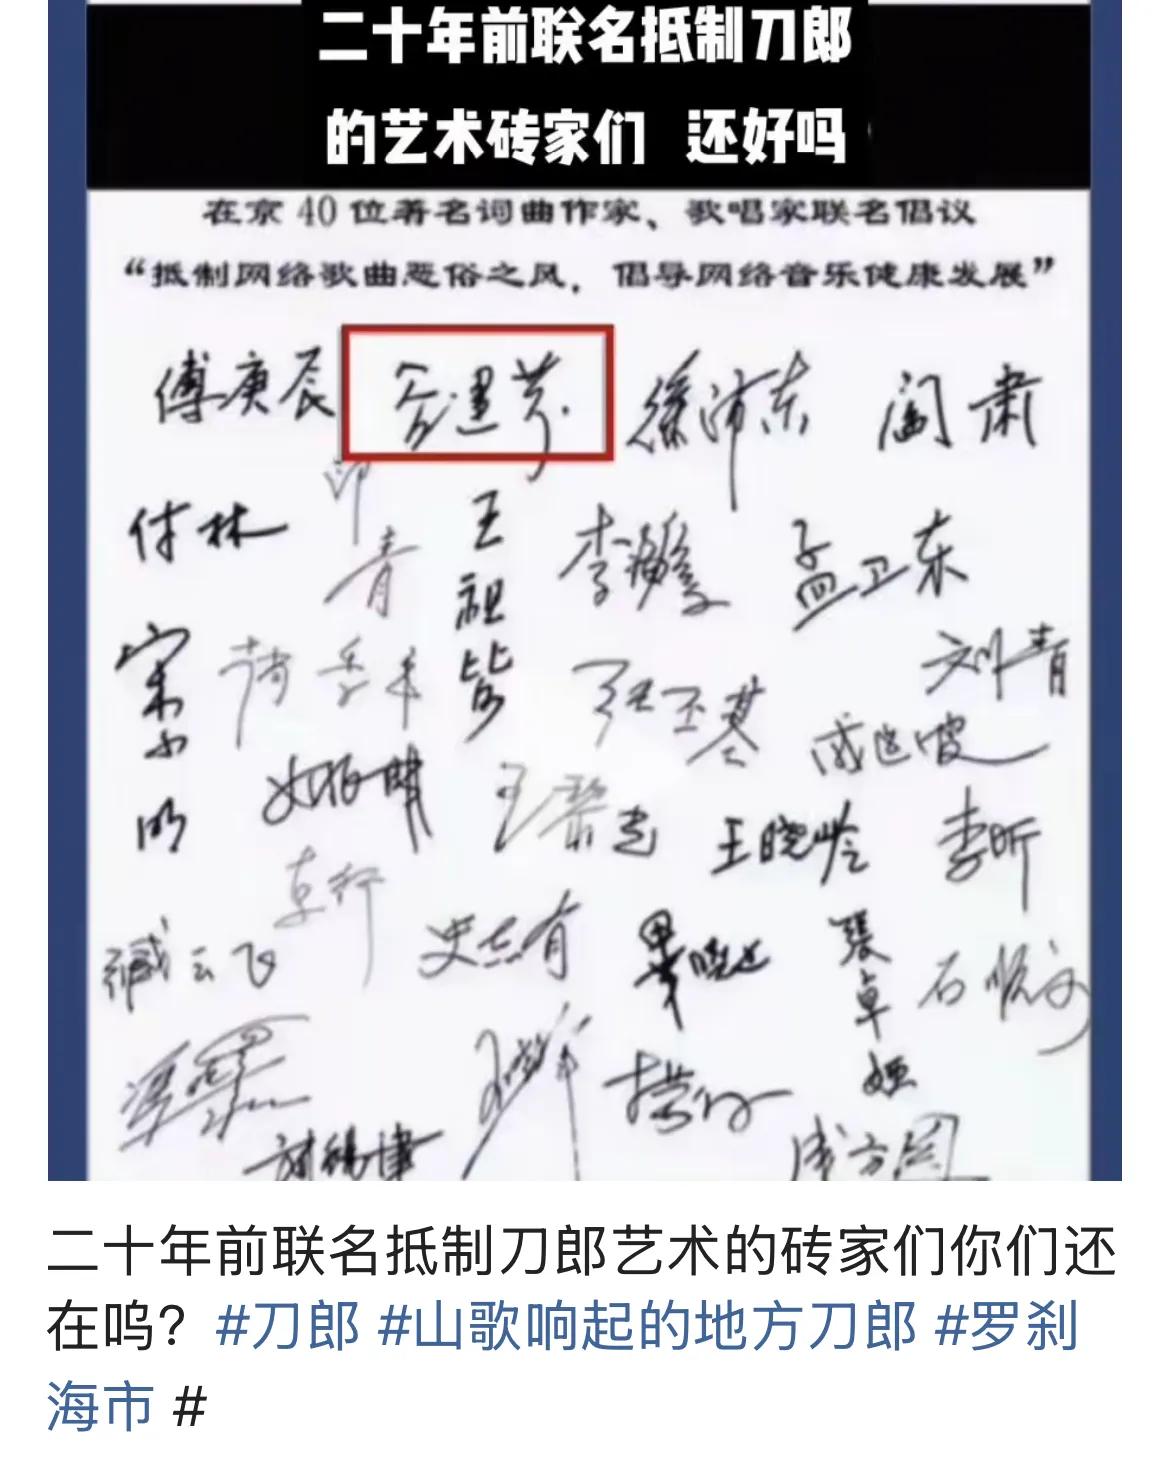 二十年前联名抵制刀郎
的艺术砖家们 还好吗
在京40位著名词曲作家、歌唱家联名倡议
“抵制网络歌曲恶俗之风，倡导网络音乐健康发展”
傅庚辰 谷建芬 徐沛东 阎肃
付林 印青 王祖皆 李海鹰 孟卫东
宋小明 刘青
王晓岭 李昕
臧云飞 史志有 张卓娅 石顺义
成方圆
二十年前联名抵制刀郎艺术的砖家们你们还
在呜？#刀郎 #山歌响起的地方刀郎 #罗刹
海市 #